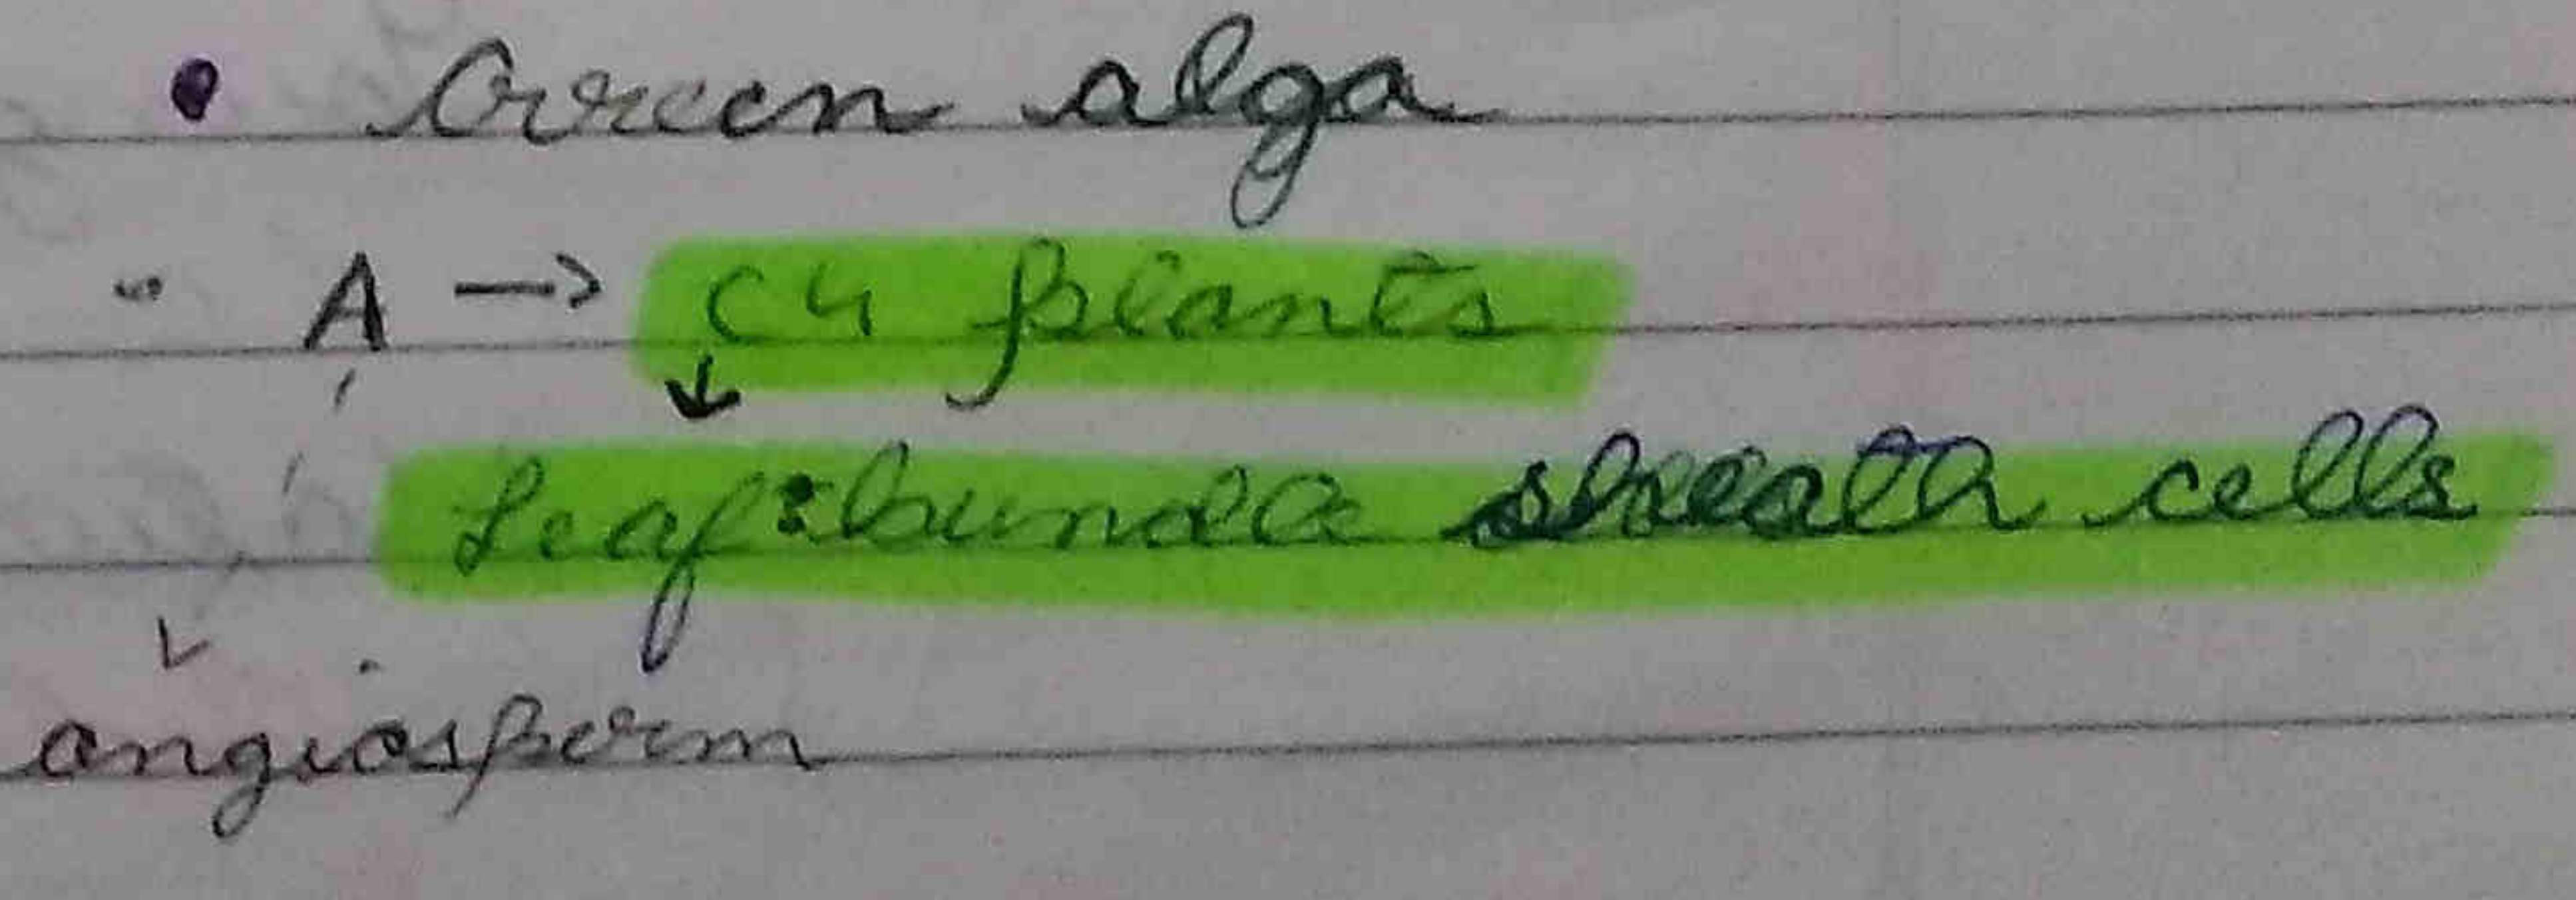 • Green alga
" A → C4 plants
↓
Leaf: bundle sheath cells
angiosperm